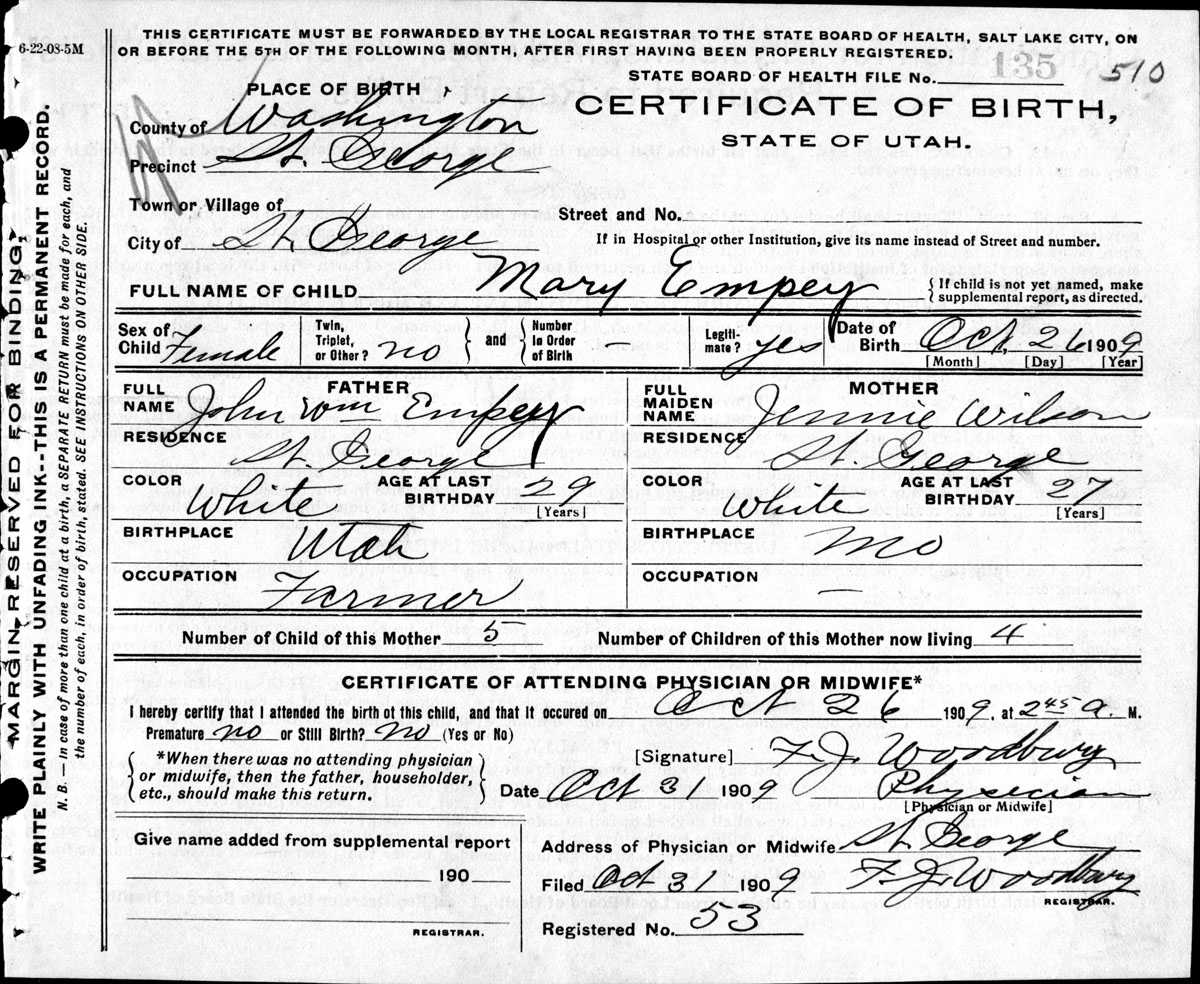 6-22-08-5M
THIS CERTIFICATE MUST BE FORWARDED BY THE LOCAL REGISTRAR TO THE STATE BOARD OF HEALTH, SALT LAKE CITY, ON
OR BEFORE THE 5TH OF THE FOLLOWING MONTH, AFTER FIRST HAVING BEEN PROPERLY REGISTERED.
STATE BOARD OF HEALTH FILE No. 135 510
PLACE OF BIRTH
CERTIFICATE OF BIRTH,
STATE OF UTAH.
County of Washington
Precinct St. George
Town or Village of
Street and No.
City of St. George
If in Hospital or other Institution, give its name instead of Street and number.
FULL NAME OF CHILD Mary Empey
{ If child is not yet named, make
supplemental report, as directed.
Sex of Child Female
Twin, Triplet, or Other? no } and { Number in Order of Birth
Legiti-mate? yes
Date of Birth Oct. 26 1909
[Month] [Day] [Year]
FATHER
FULL NAME John Wm Empey
RESIDENCE St. George
COLOR White
AGE AT LAST BIRTHDAY 29
[Years]
BIRTHPLACE Utah
OCCUPATION Farmer
MOTHER
FULL MAIDEN NAME Jennie Wilson
RESIDENCE St. George
COLOR White
AGE AT LAST BIRTHDAY 27
[Years]
BIRTHPLACE Mo
OCCUPATION —
Number of Child of this Mother 5
Number of Children of this Mother now living 4
CERTIFICATE OF ATTENDING PHYSICIAN OR MIDWIFE*
I hereby certify that I attended the birth of this child, and that it occured on Oct 26 1909, at 2 45 a. M.
Premature no or Still Birth? No (Yes or No)
{ *When there was no attending physician
or midwife, then the father, householder,
etc., should make this return. }
[Signature] F. J. Woodbury
Date Oct 31 1909 Physician
[Physician or Midwife]
Give name added from supplemental report
190
REGISTRAR.
Address of Physician or Midwife St. George
Filed Oct 31 1909 F. J. Woodbury
REGISTRAR.
Registered No. 53
MARGIN RESERVED FOR BINDING.
WRITE PLAINLY WITH UNFADING INK--THIS IS A PERMANENT RECORD.
N. B. — In case of more than one child at a birth, a SEPARATE RETURN must be made for each, and
the number of each, in order of birth, stated. SEE INSTRUCTIONS ON OTHER SIDE.